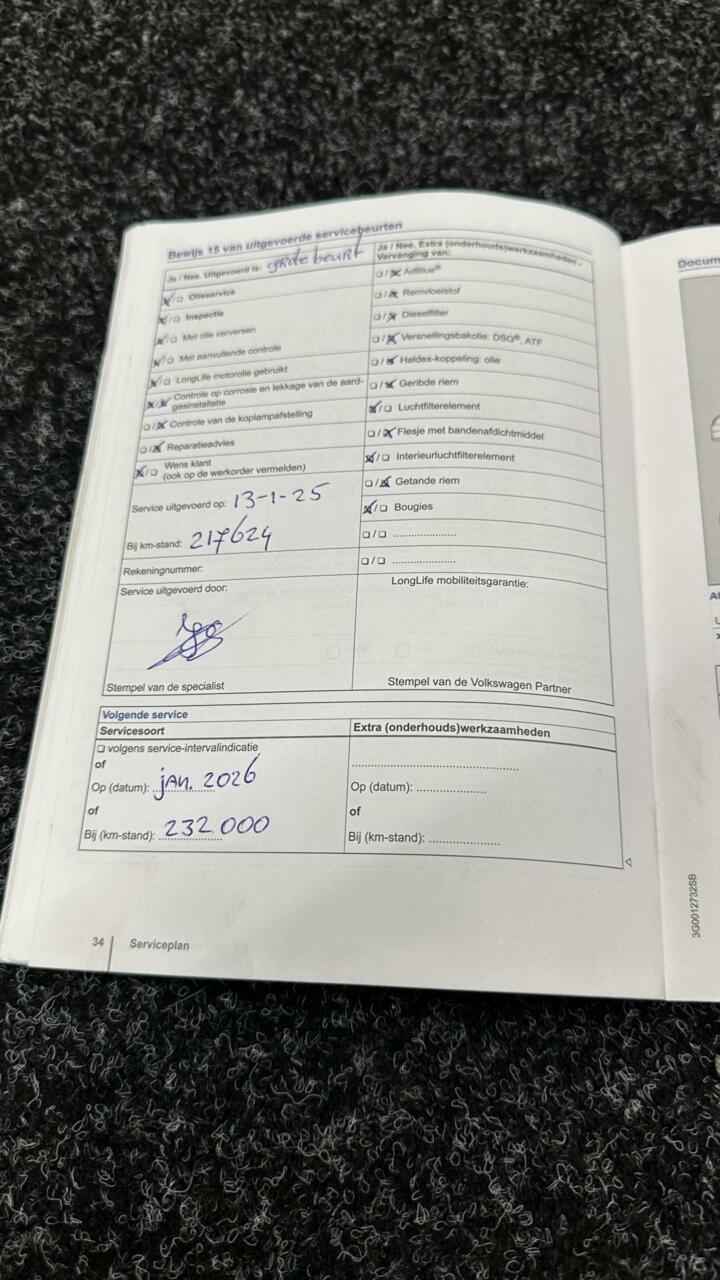 Bewijs 15 van uitgevoerde servicebeurten
Ja / Nee. Uitgevoerd is: grote beurt
☒/❏ Olieservice
☒/❏ Inspectie
☒/❏ Met olie verversen
☒/❏ Met aanvullende controle
☒/❏ LongLife motorolie gebruikt
☒/☒ Controle op corrosie en lekkage van de aard-
gasinstallatie
❏/☒ Controle van de koplampafstelling
❏/☒ Reparatieadvies
☒/❏ Wens klant
(ook op de werkorder vermelden)
Service uitgevoerd op: 13-1-25
Bij km-stand: 217624
Rekeningnummer:
Service uitgevoerd door:
Stempel van de specialist
Ja / Nee. Extra (onderhouds)werkzaamheden -
Vervanging van:
❏/☒ AdBlue®
❏/☒ Remvloeistof
❏/☒ Dieselfilter
❏/☒ Versnellingsbakolie: DSG®, ATF
❏/☒ Haldex-koppeling: olie
❏/☒ Geribde riem
☒/❏ Luchtfilterelement
❏/☒ Flesje met bandenafdichtmiddel
☒/❏ Interieurluchtfilterelement
❏/☒ Getande riem
☒/❏ Bougies
❏/❏ ....................
❏/❏ ....................
LongLife mobiliteitsgarantie:
Stempel van de Volkswagen Partner
Volgende service
Servicesoort
❏ volgens service-intervalindicatie
of
Op (datum): jan. 2026
of
Bij (km-stand): 232 000
Extra (onderhouds)werkzaamheden
..................................................
Op (datum): .....................
of
Bij (km-stand): .....................
34 Serviceplan
Docum
3G0012732SB